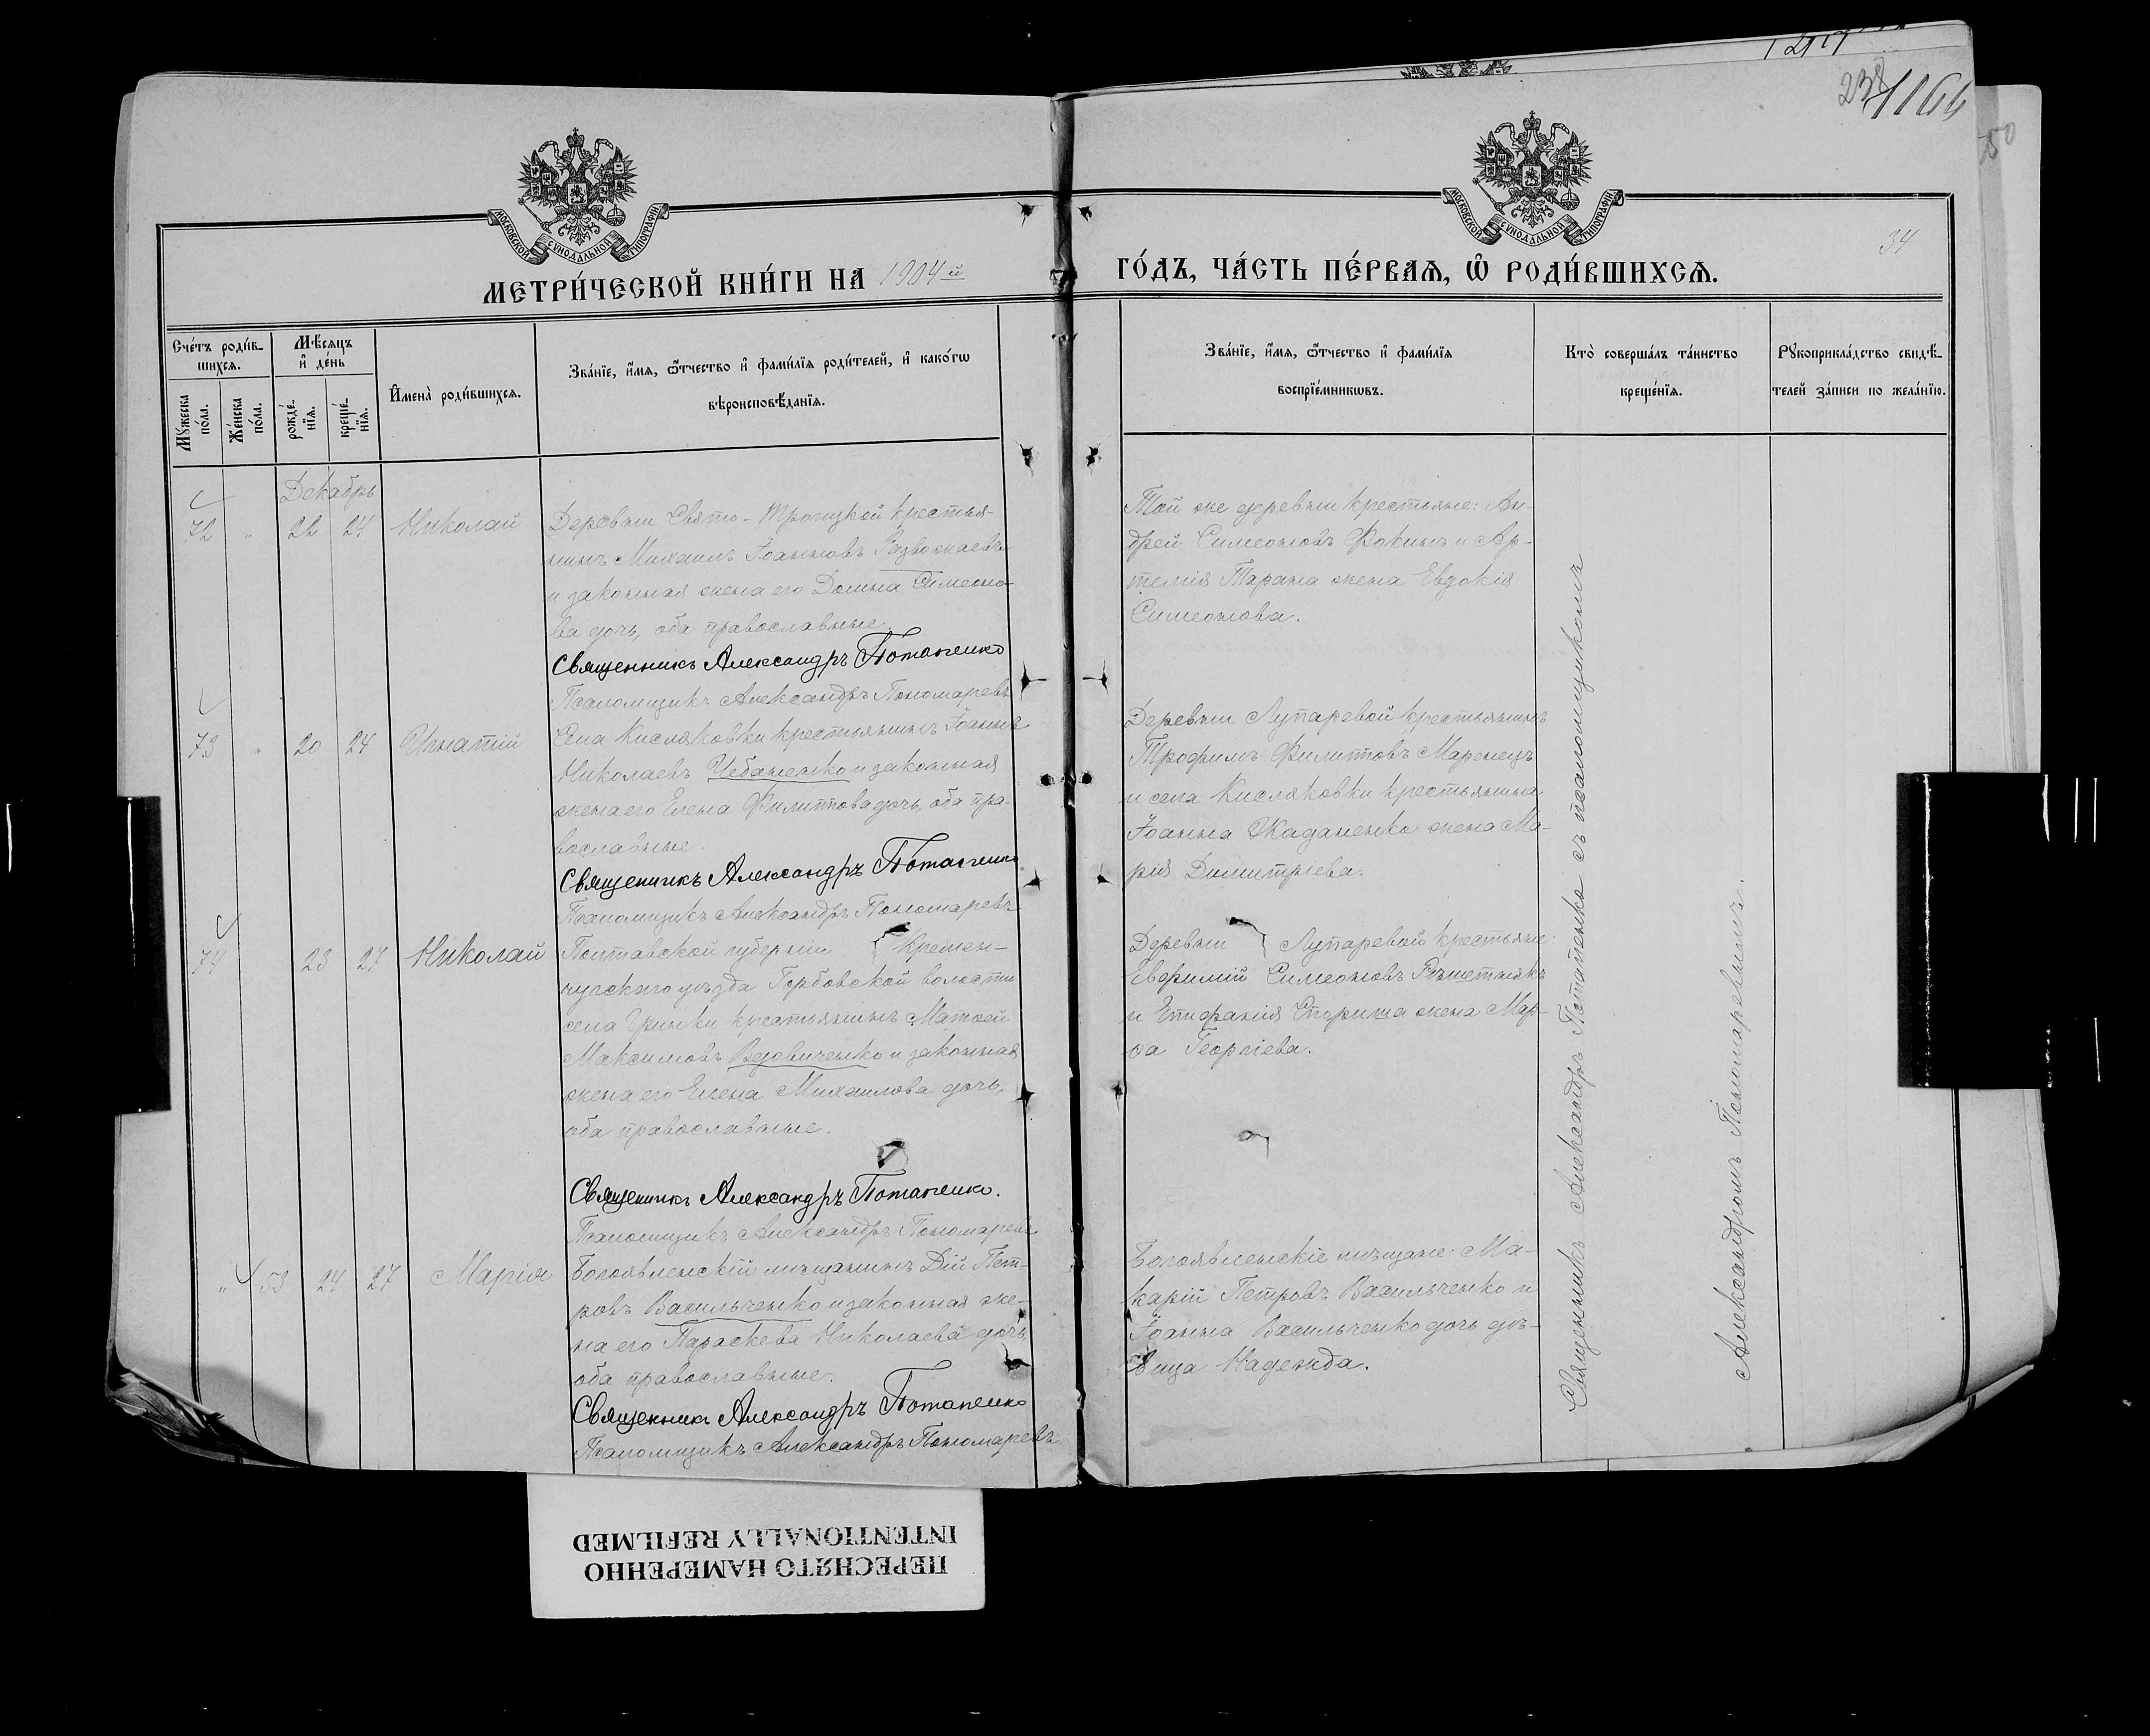 1166
238
50
МОСКОВСКОЙ СѴНОДАЛЬНОЙ ТИПОГРАФІИ
МОСКОВСКОЙ СѴНОДАЛЬНОЙ ТИПОГРАФІИ
34
МЕТРИ́ЧЕСКОЙ КНИ́ГИ НА 1904й
ГО́ДЪ, ЧА́СТЬ ПЕ́РВАЯ, Ѽ РОДИ́ВШИХСЯ.
Сче́тъ роди́в-
шихся.
Мꙋжеска по́ла.
Же́нска по́ла.
Мѣ́сяцъ и҆ де́нь
рожде́-нїя.
креще́-нїя.
И҆мена̀ роди́вшихся.
Зва́нїе, и҆́мя, ѻ҆́тчество и҆ фами́лїя роди́телей, и҆ како́гѡ
вѣроисповѣ́данїя.
Зва́нїе, и҆́мя, ѻ҆́тчество и҆ фами́лїя
воспрїе́мникѡвъ.
Кто̀ соверша́лъ та́инство
креще́нїя.
Рꙋкоприкла́дство свидѣ́-
телей за́писи по жела́нїю.
Декабрь
72 " 22 24 Николай
Деревни Свято-Троицкой крестья-
нинъ Михаилъ Іоанновъ Развожаевъ
и законная жена его Домна Симеоно-
ва дочь, оба православные.
Священникъ Александръ Потапенко
Псаломщикъ Александръ Пономаревъ
Той же деревни крестьяне: Ан-
дрей Симеоновъ Фокинъ и Ар-
темія Тарана жена Евдокія
Симеонова.
73 " 20 24 Игнатій
Села Кисляковки крестьянинъ Іоаннъ
Николаевъ Чебаненко и законная
жена его Елена Филиппова дочь, оба пра-
вославные.
Священникъ Александръ Потапенко
Псаломщикъ Александръ Пономаревъ
Деревни Лупаревой крестьянинъ
Трофимъ Филипповъ Маренецъ
и села Кисляковки крестьянина
Іоанна Жаданенко жена Ма-
рія Димитріева.
74 23 27 Николай
Полтавской губерніи Кремен-
чугскаго уѣзда Горбовской волости
села Гриньки крестьянинъ Матѳей
Максимовъ Вдовиченко и законная
жена его Елена Михаилова дочь,
оба православные.
Священникъ Александръ Потапенко.
Псаломщикъ Александръ Пономаревъ
Деревни Лупаревой крестьяне:
Евфимій Симеоновъ Рѣшетнякъ
и Епифанія Спориша жена Мар-
ѳа Георгіева.
" 53 24 27 Марія
Богоявленскій мѣщанинъ Дій Пет-
ровъ Васильченко и законная же-
на его Параскева Николаева дочь
оба православные.
Священникъ Александръ Потапенко
Псаломщикъ Александръ Пономаревъ
Богоявленскіе мѣщане: Ма-
карій Петровъ Васильченко и
Іоанна Васильченко дочь дѣ-
вица Надежда.
Священникъ Александръ Потапенко съ псаломщикомъ
Александромъ Пономаревымъ.
ПЕРЕСНЯТО НАМЕРЕННО
INTENTIONALLY REFILMED